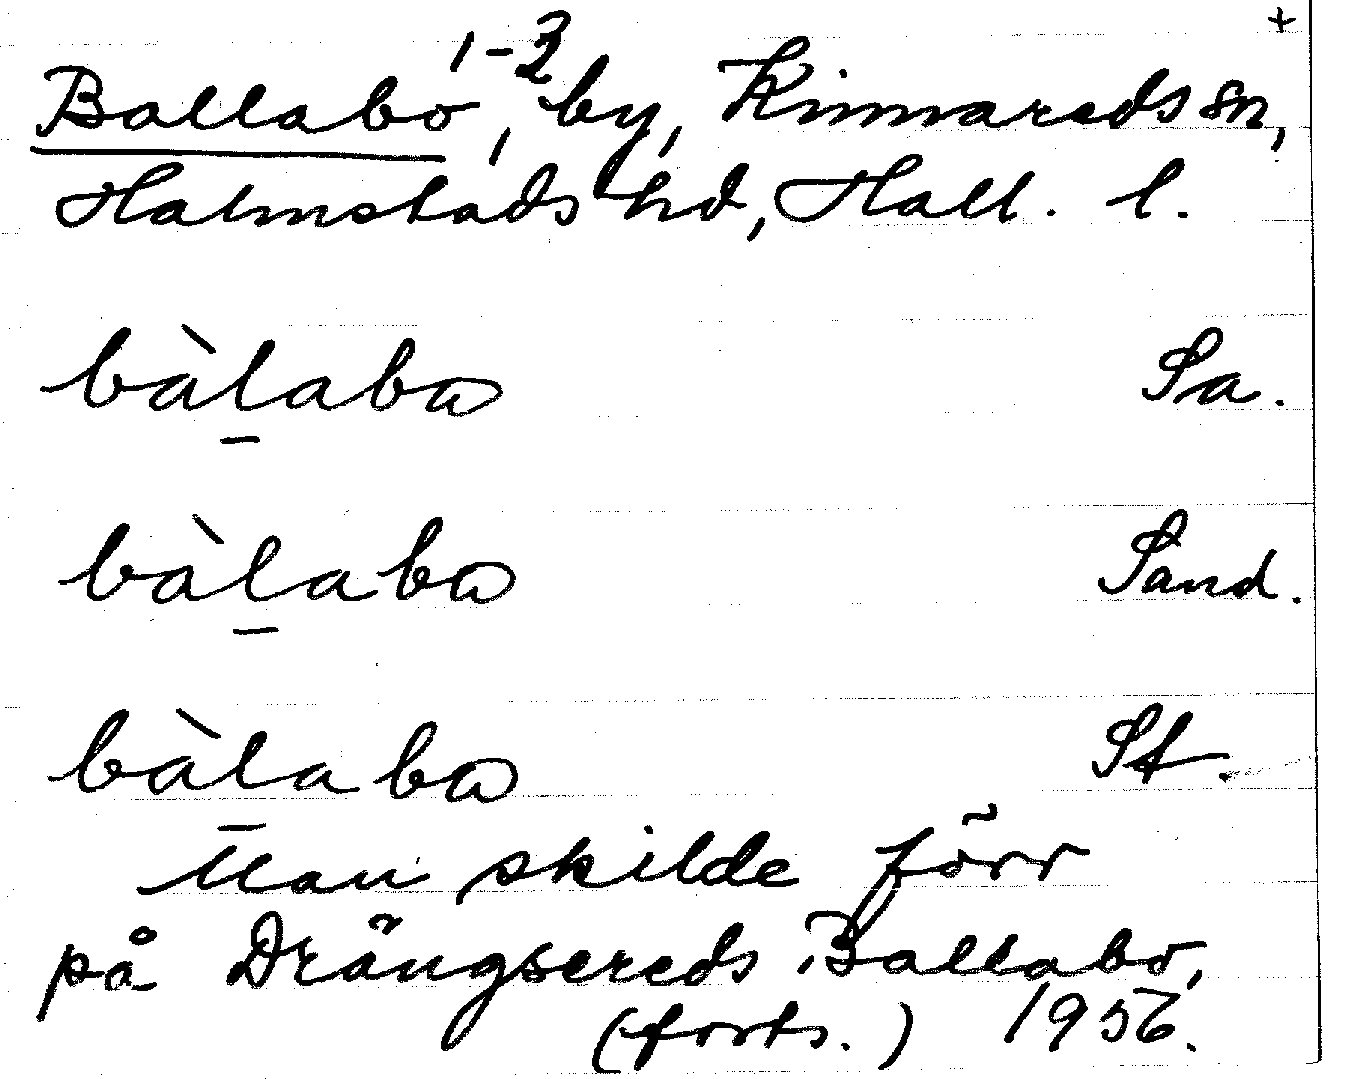 +
Ballabo 1-3, by, Kinnareds sn,
Halmstads hd, Hall. l.
bàlabω Sa.
bàlabω Sand.
bàlabω St.
Man skilde förr
på Drängsereds Ballabo,
(forts.) 1956.